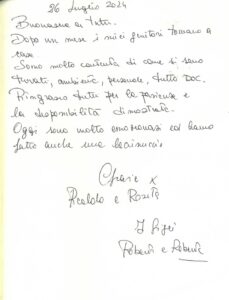 26 Luglio 2024
Buonasera a tutti.
Dopo un mese i miei genitori tornano a
casa
Sono molto contenta di come si sono
trovati, ambiente, personale, tutto DOC.
Ringrazio tutti per la pazienza e
la disponibilità dimostrate.
Oggi sono molto emozionati ed hanno
fatto anche una
Grazie x
e Rosita
I figli
Roberto e Roberta